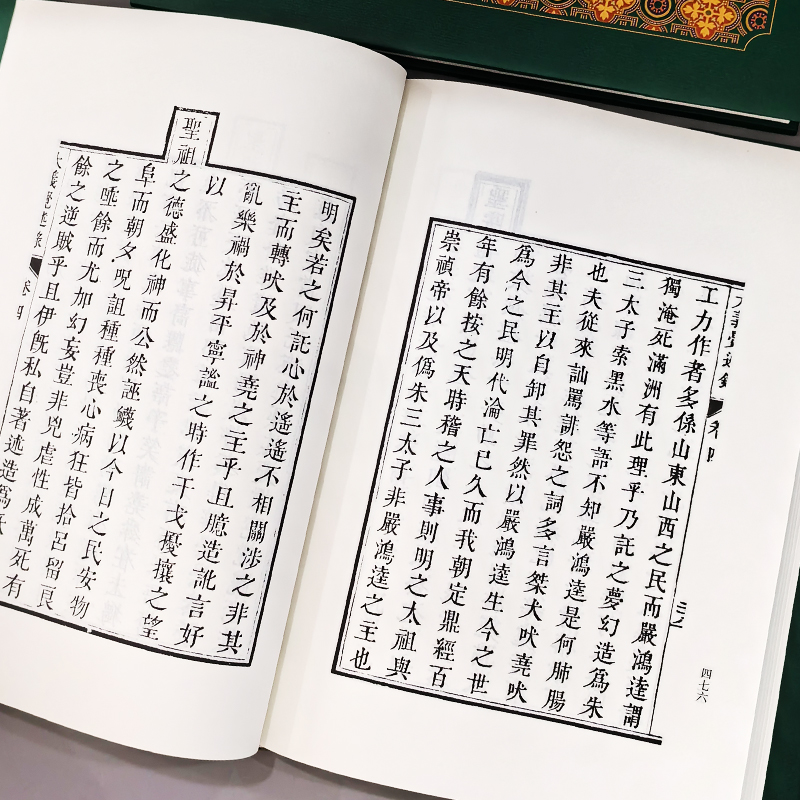 大義覺迷錄 卷四
工力作者多係山東山西之民而嚴鴻逵謂
獨淹死滿洲有此理乎乃託之夢幻造爲朱
三太子索黑水等語不知嚴鴻逵是何肺腸
也夫從來訕罵誹怨之詞多言桀犬吠堯吠
非其主以自卸其罪然以嚴鴻逵生今之世
爲今之民明代淪亡已久而我朝定鼎經百
年有餘按之天時稽之人事則明之太祖與
崇禎帝以及僞朱三太子非嚴鴻逵之主也
四七六
明矣若之何託心於遙遙不相關涉之非其
主而轉吠及於神堯之主乎且臆造訛言好
亂樂禍於昇平寧謐之時作干戈擾攘之望
以
聖祖之德盛化神而公然誣衊以今日之民安物
阜而朝夕呪詛種種喪心病狂皆拾呂留良
之唾餘而尤加幻妄豈非兇虐性成萬死有
餘之逆賊乎且伊旣私自著述造爲
大義覺迷錄 卷四